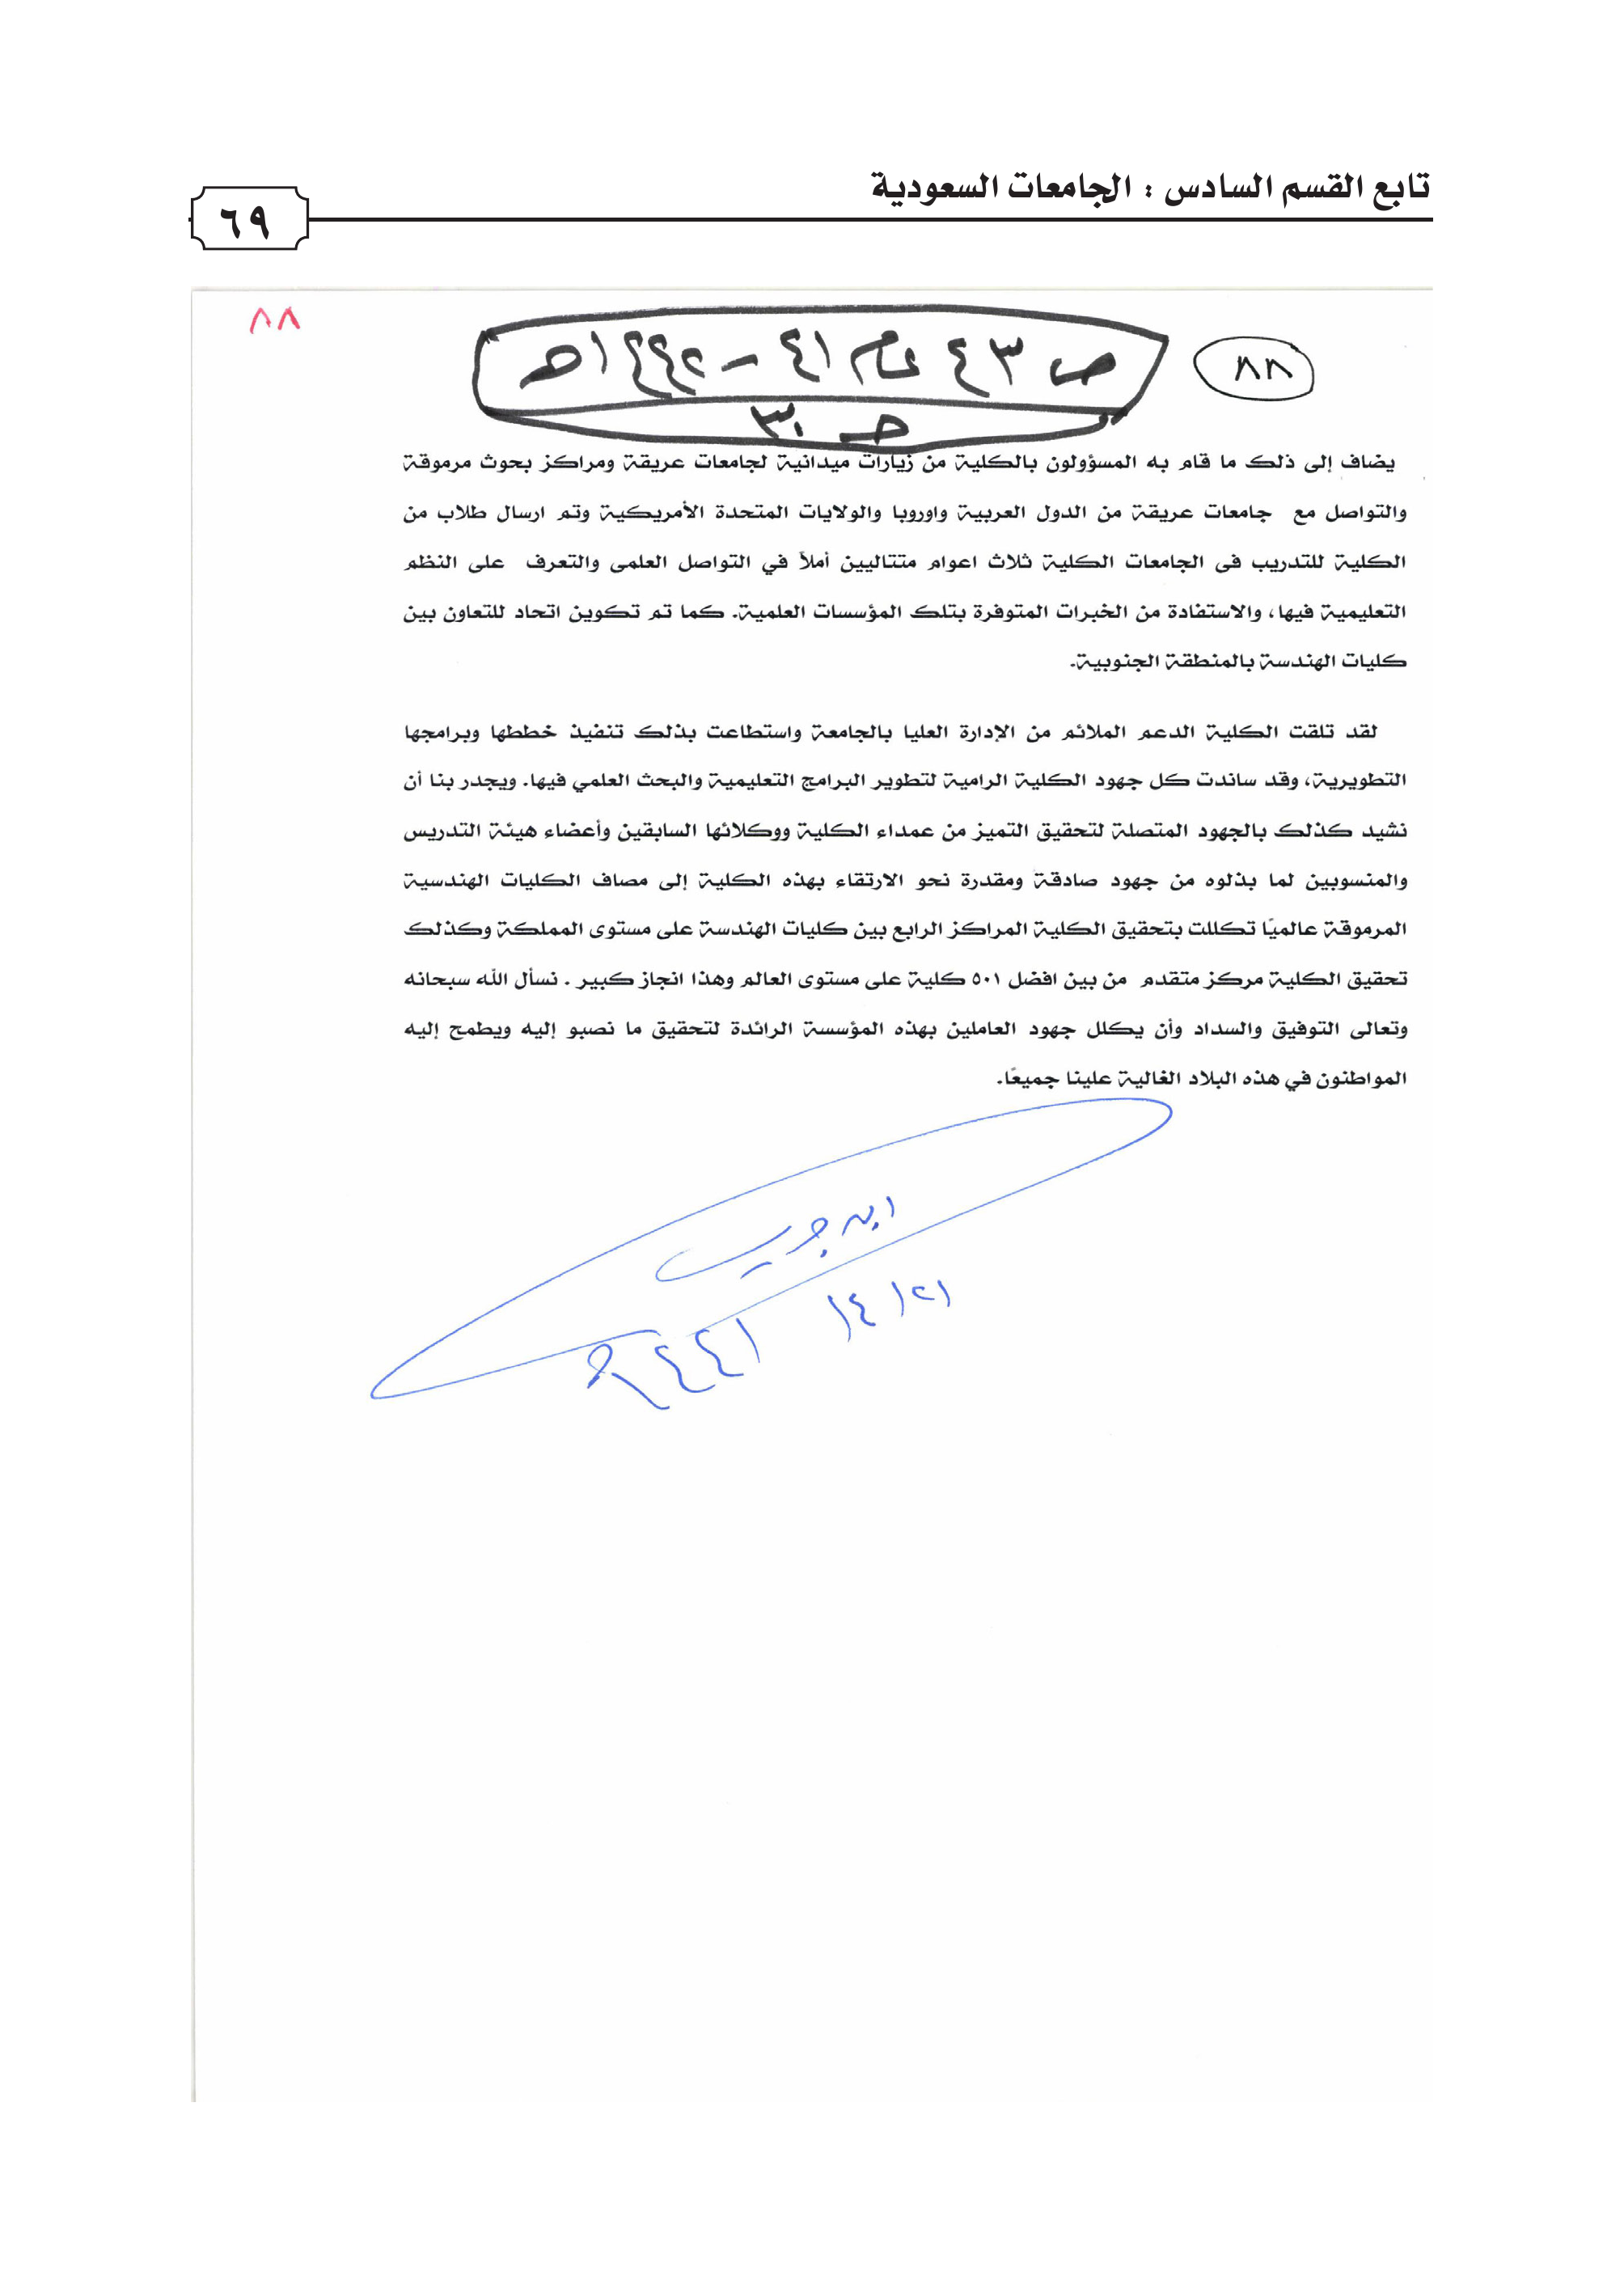 تابع القسم السادس : الجامعات السعودية
٦٩
٨٨
٨٨
ص ٤٣ عام ٤١ – ١٤٤٢هـ
حـ ٣٠
يضاف إلى ذلك ما قام به المسؤولون بالكلية من زيارات ميدانية لجامعات عريقة ومراكز بحوث مرموقة
والتواصل مع جامعات عريقة من الدول العربية واوروبا والولايات المتحدة الأمريكية وتم ارسال طلاب من
الكلية للتدريب فى الجامعات الكلية ثلاث اعوام متتاليين أملاً في التواصل العلمى والتعرف على النظم
التعليمية فيها، والاستفادة من الخبرات المتوفرة بتلك المؤسسات العلمية. كما تم تكوين اتحاد للتعاون بين
كليات الهندسة بالمنطقة الجنوبية.
لقد تلقت الكلية الدعم الملائم من الإدارة العليا بالجامعة واستطاعت بذلك تنفيذ خططها وبرامجها
التطويرية، وقد ساندت كل جهود الكلية الرامية لتطوير البرامج التعليمية والبحث العلمي فيها. ويجدر بنا أن
نشيد كذلك بالجهود المتصلة لتحقيق التميز من عمداء الكلية ووكلائها السابقين وأعضاء هيئة التدريس
والمنسوبين لما بذلوه من جهود صادقة ومقدرة نحو الارتقاء بهذه الكلية إلى مصاف الكليات الهندسية
المرموقة عالميًا تكللت بتحقيق الكلية المراكز الرابع بين كليات الهندسة على مستوى المملكة وكذلك
تحقيق الكلية مركز متقدم من بين افضل ٥٠١ كلية على مستوى العالم وهذا انجاز كبير . نسأل الله سبحانه
وتعالى التوفيق والسداد وأن يكلل جهود العاملين بهذه المؤسسة الرائدة لتحقيق ما نصبو إليه ويطمح إليه
المواطنون في هذه البلاد الغالية علينا جميعًا.
ابن جريس